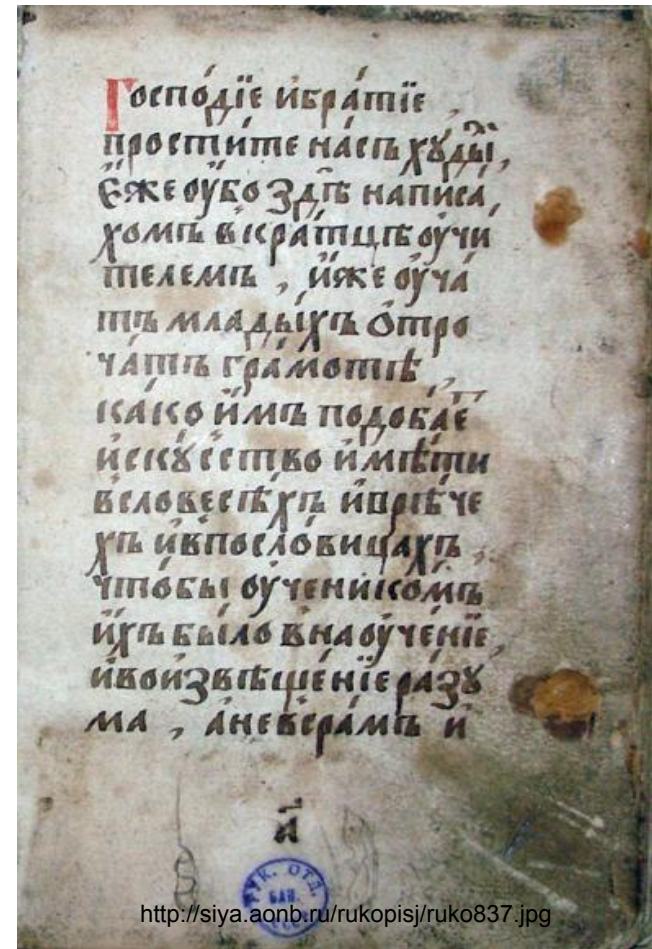 Господїе ибратїе,
простите насъ худыи,
Еже оубо здѣ написа
хомъ вкратцѣ оучи
телемъ , иже оуча
тъ младыхъ отро
чатъ грамотѣ,
како имъ подобае
искусство имѣти
всловесѣхъ иврѣче
хъ ивпословицахъ,
чтобы оученикомъ
ихъ было внаоученїе,
ивоизвѣщенїе разу
ма , аневсрамъ и
а҃
РУК. ОТД.
БАН.
http://siya.aonb.ru/rukopisj/ruko837.jpg